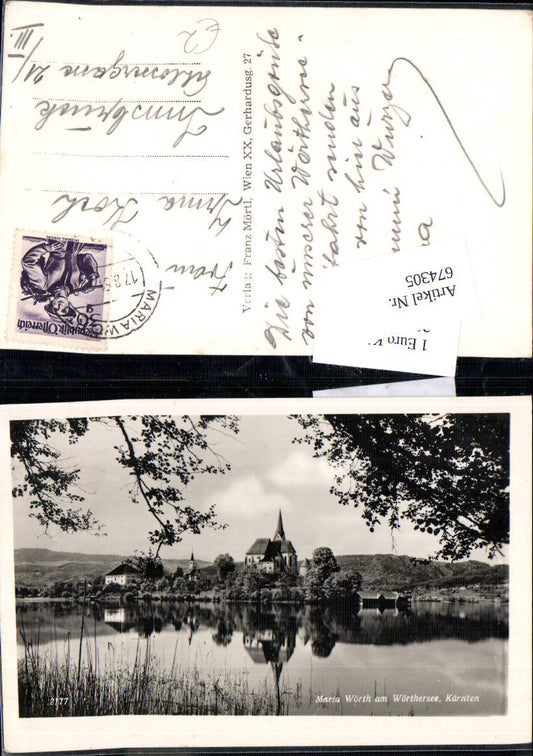 Die besten Urlaubsgrüße
von unserer Wörthersee-
fahrt senden
von hier aus
Frau
Irma Koch
Innsbruck
21/III.
£2
Verlag: Franz Mörtl, Wien XX, Gerhardusg. 27
Republik Österreich
MARIA W
17.8.5
Artikel Nr.
674305
1 Euro
2177
Maria Wörth am Wörthersee, Kärnten